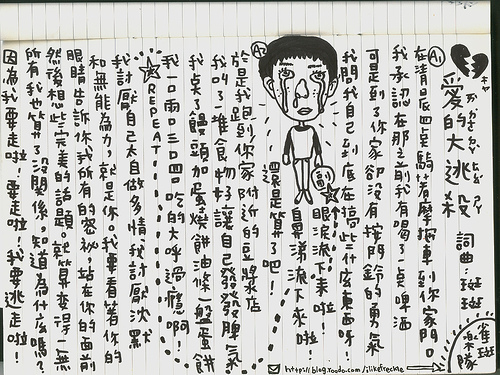 愛的大逃殺 詞曲:斑斑
A1 在清晨四點騎著摩托車到你家門口
我承認在那之前我有喝了一點啤酒
可是到了你家卻沒有按門鈴的勇氣
我問我自己到底在搞些什麼東西呀!
眼淚流下來啦!
鼻涕流下來啦!
還是算了吧!
A2 於是我跑到你家附近的豆漿店
我叫了一堆食物好讓自己發發脾氣
我點了饅頭加蛋燒餅油條一盤蛋餅
我一口兩口三口四口吃的大呼過癮啊!
REPEAT
我討厭自己太自做多情我討厭沈默
和無能為力,就是你。我要看著你的
眼睛告訴你我所有的祕密,站在你的面前
然後想些完美的話題。就算變得一無
所有我也算了沒關係,知道為什麼嗎?
因為我要走啦!要走啦!我要逃走啦!
雀斑樂隊
http://blog.roodo.com/ilikefreckle